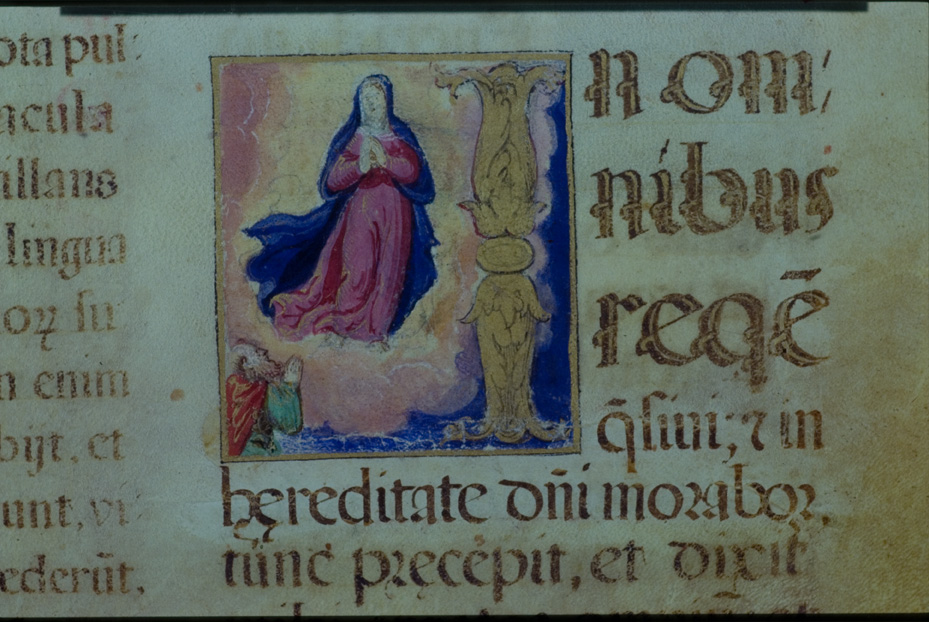 ota pul
acula
illans
lingua
oꝝ su
n enim
bijt, et
unt, vi
ederūt,
In om/
nibus
reqē
q̄siui; ⁊ in
hęreditate dn̄i morabor,
tunc pręcepit, et dixit